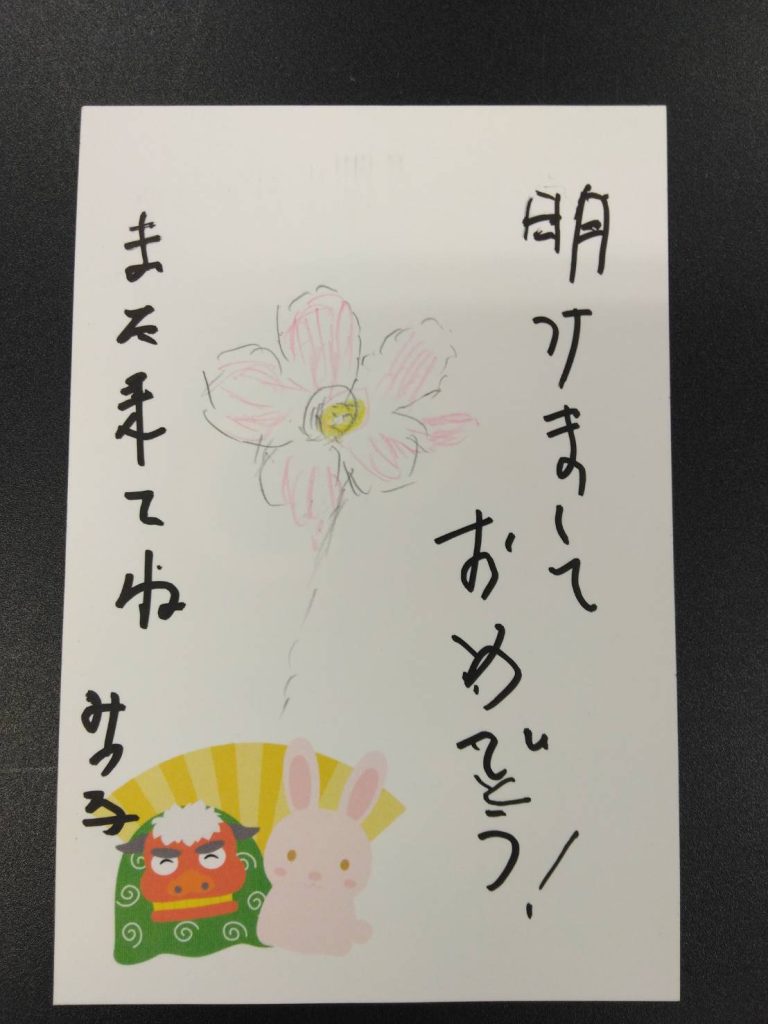 明けまして
おめでとう!
また来てね
みつ子